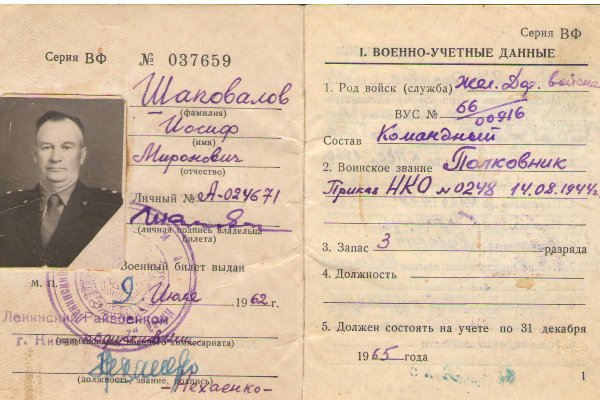 Серия ВФ № 037659
Шаповалов
(фамилия)
Иосиф
(имя)
Миронович
(отчество)
Личный № А-024671
(личная подпись владельца билета)
Военный билет выдан
М. П.
9 Июля 1962 г.
Ленинский Райвоенком
г. Ки
комиссариата)
(должность, звание, подпись)
-Нехаенко-
Серия ВФ
I. ВОЕННО-УЧЕТНЫЕ ДАННЫЕ
1. Род войск (служба) Жел. Дор. войска
ВУС № 66/00916
Состав Командный
2. Воинское звание Полковник
Приказ НКО № 0248 14.08.1944г.
3. Запас 3 разряда
4. Должность
5. Должен состоять на учете по 31 декабря
1965 года
1